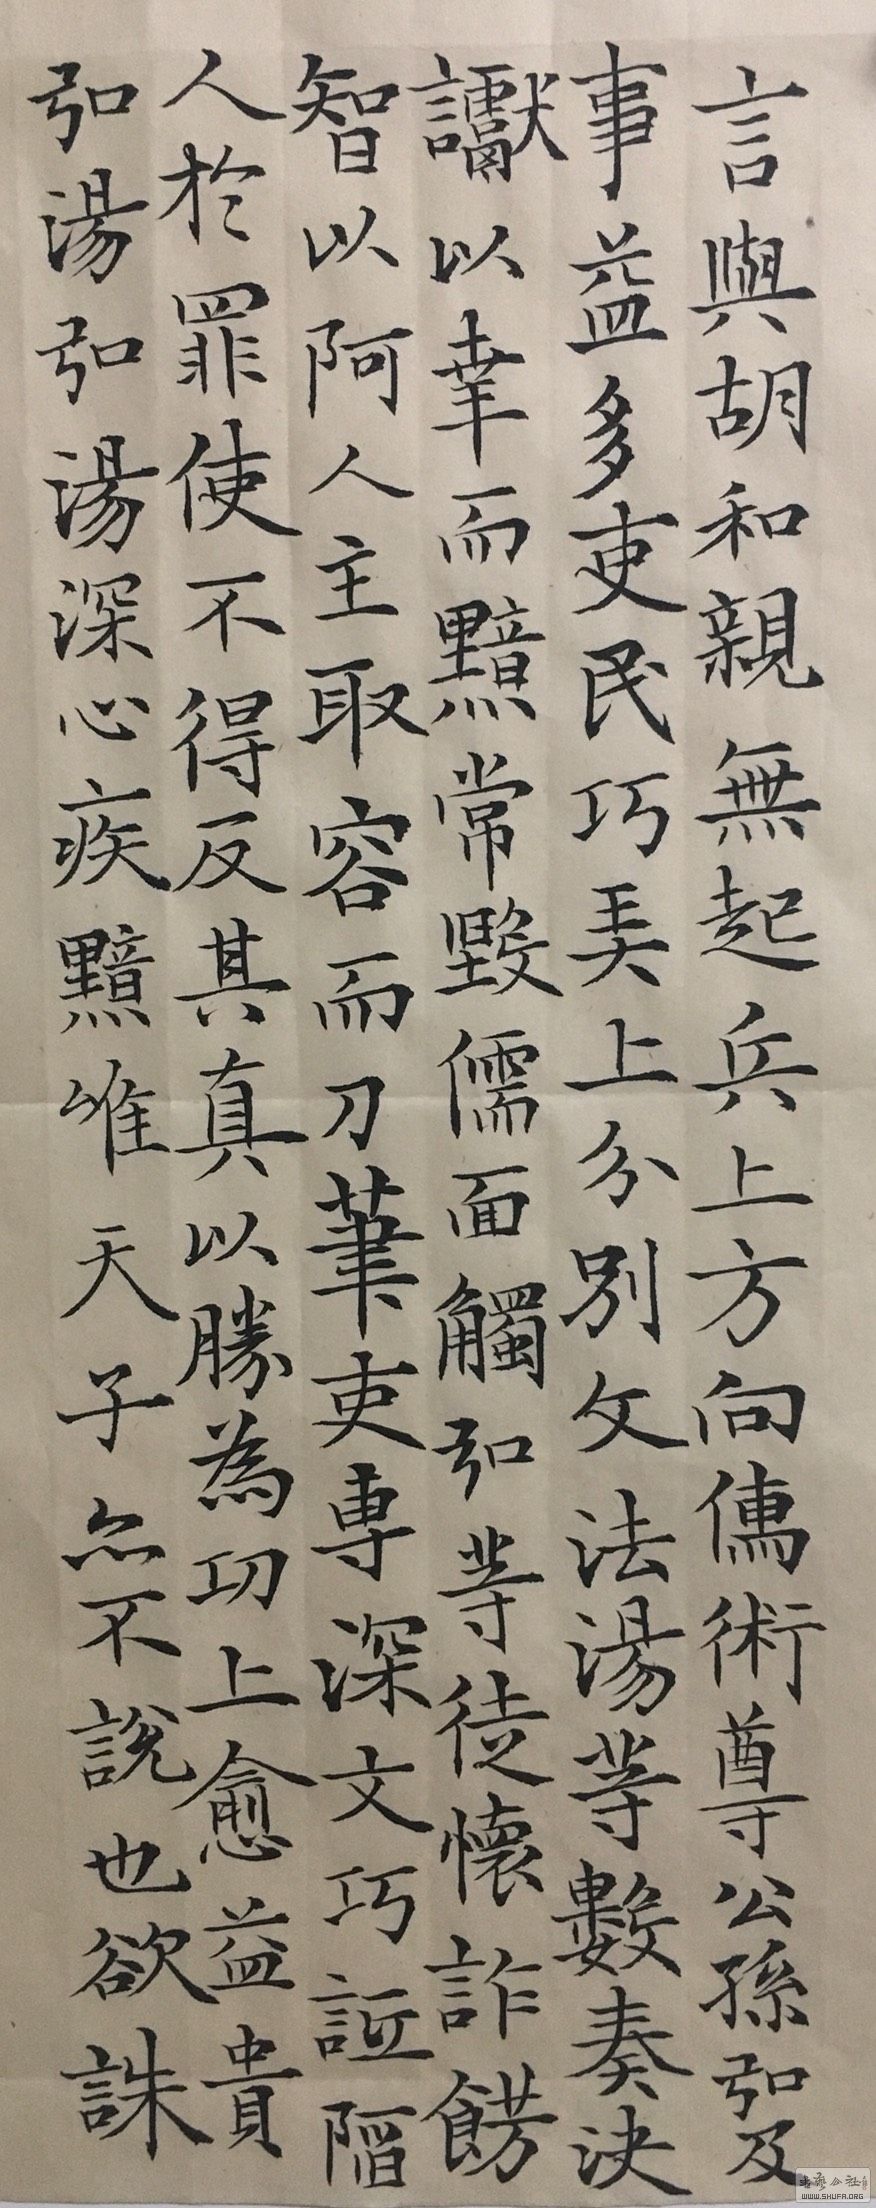 言與胡和親無起兵上方向儒術尊公孫弘及
事益多吏民巧弄上分別文法湯等數奏決
讞以幸而黯常毀儒面觸弘等徒懷詐飾
智以阿人主取容而刀筆吏專深文巧詆陷
人於罪使不得反其真以勝為功上愈益貴
弘湯弘湯深心疾黯唯天子亦不說也欲誅
WWW.SHUFA.ORG